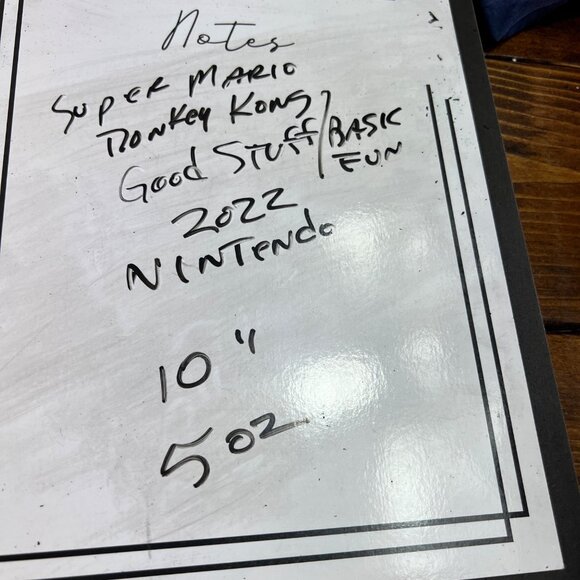 Notes
SUPER MARIO
DONKEY KONG
GOOD STUFF/BASIC
FUN
2022
NINTENDO
10"
5oz